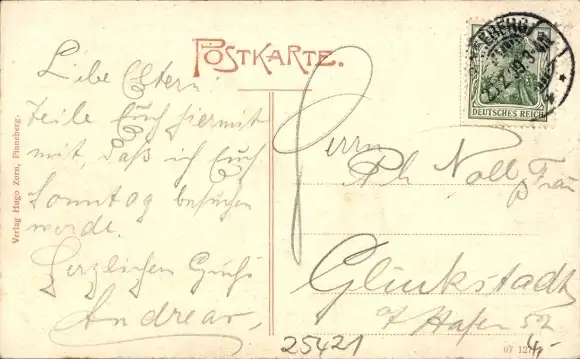 POSTKARTE.
Liebe Eltern!
Teile Euch hiermit
mit, daß ich Euch
Sonntag besuchen
werde.
Herzlichen Gruß
Andreas,
Verlag Hugo Zorn, Pinneberg.
DEUTSCHES REICH
Herrn
Ph. Noll, Frau
Glückstadt
a/ Hafen 52
25421
07 127
4,-